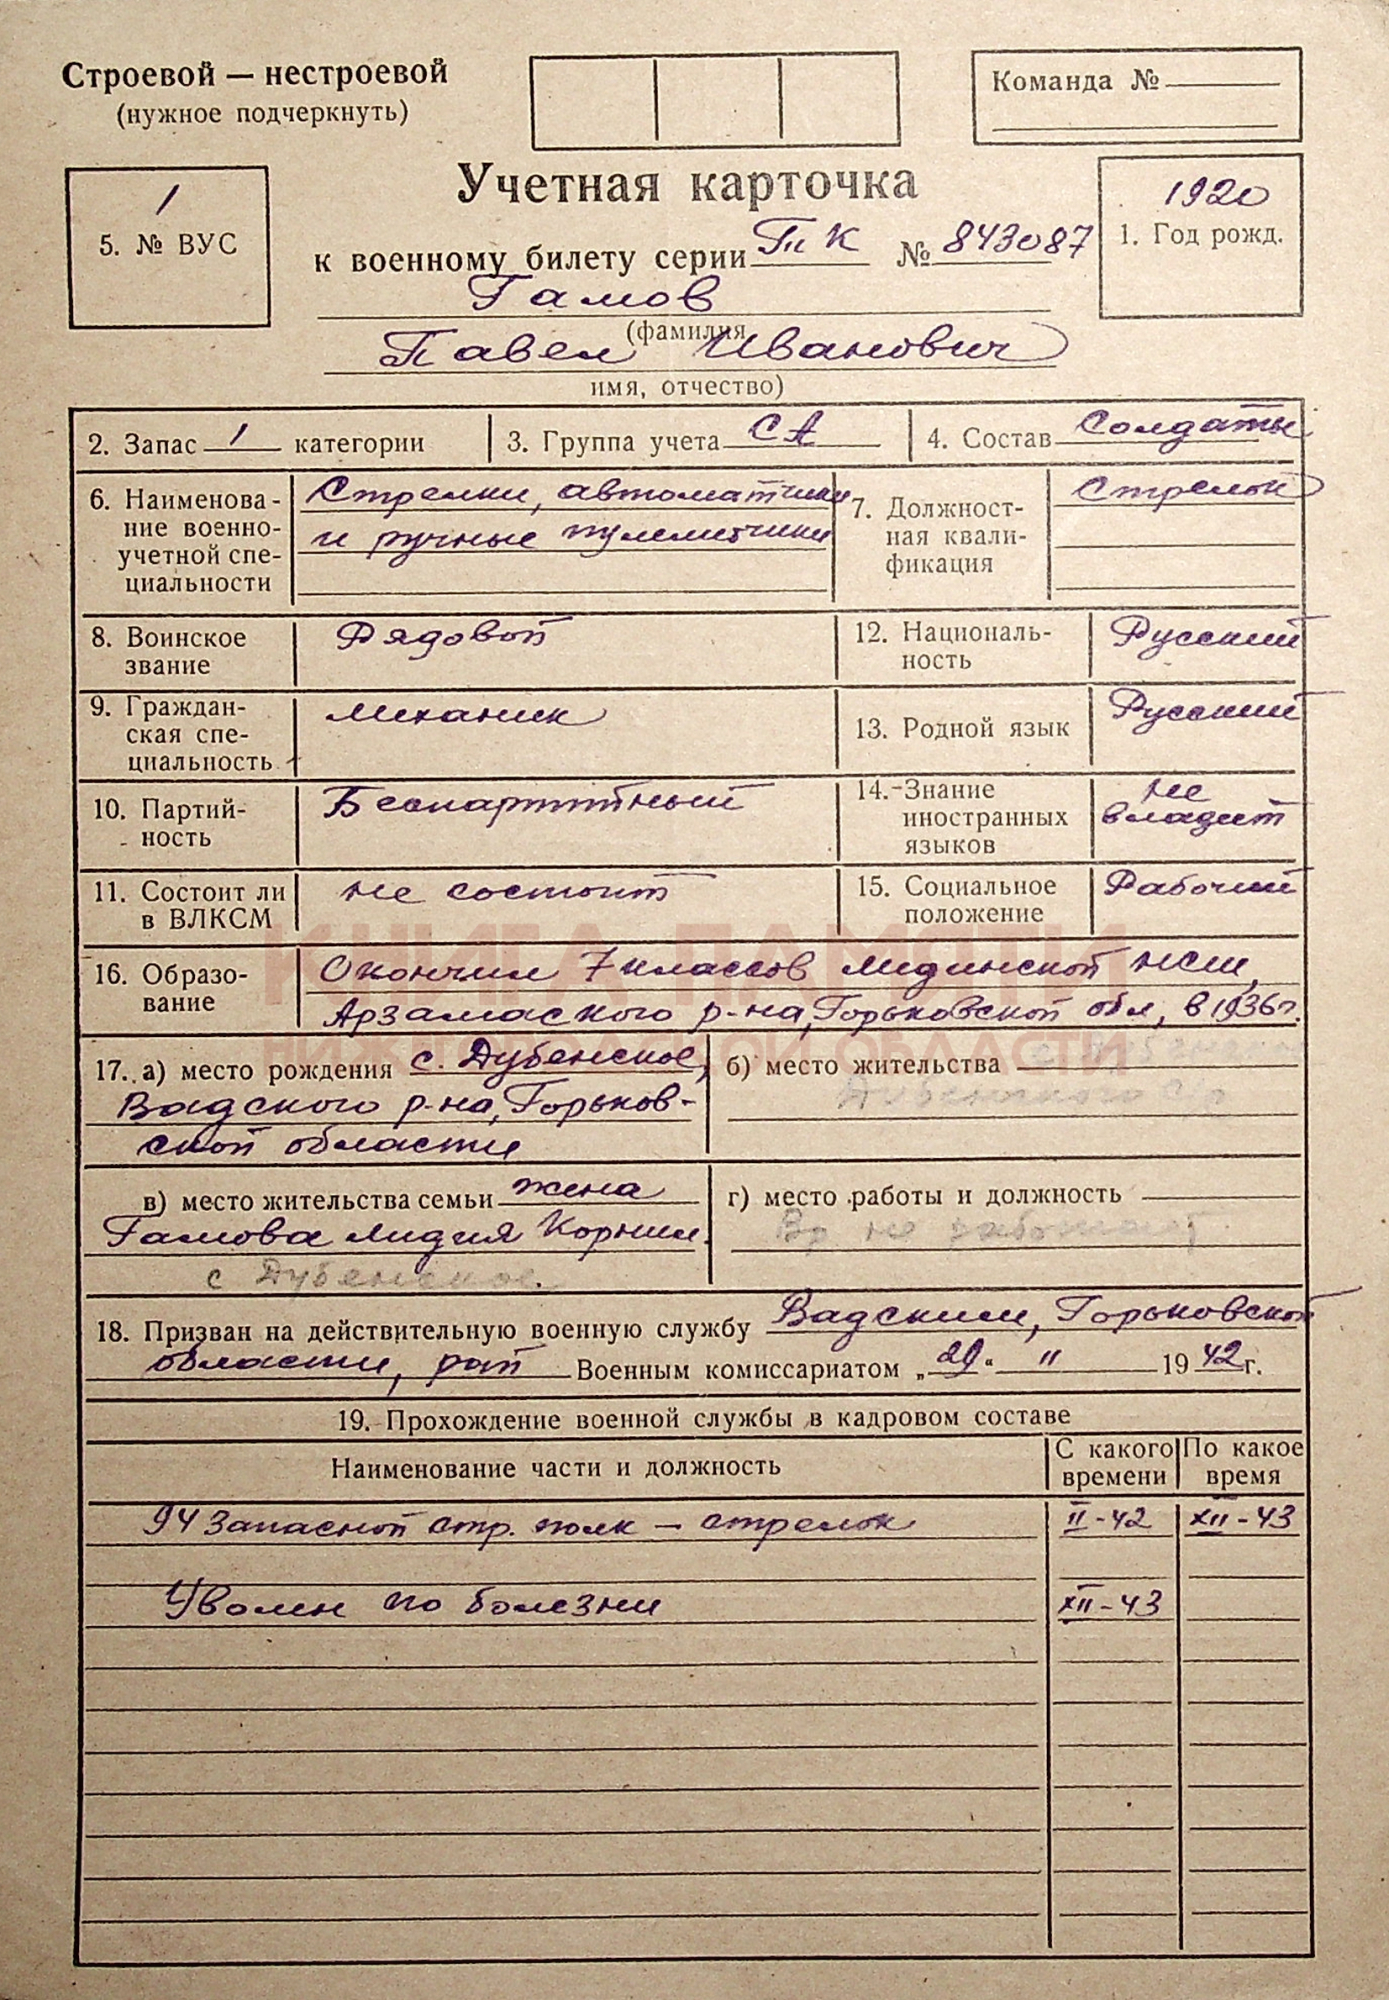 Строевой — нестроевой
(нужное подчеркнуть)
Команда №
Учетная карточка
1
5. № ВУС
1920
1. Год рожд.
к военному билету серии ТК № 843087
Гамов
(фамилия
Павел Иванович
имя, отчество)
2. Запас 1 категории
3. Группа учета СА
4. Состав Солдаты
6. Наименова-
ние военно-
учетной спе-
циальности
Стрелки, автоматчики
и ручные пулеметчики
7. Должност-
ная квали-
фикация
Стрелок
8. Воинское
звание
Рядовой
12. Националь-
ность
Русский
9. Граждан-
ская спе-
циальность
Механик
13. Родной язык
Русский
10. Партий-
ность
Беспартийный
14. Знание
иностранных
языков
не
владеет
11. Состоит ли
в ВЛКСМ
не состоит
15. Социальное
положение
Рабочий
КНИГА ПАМЯТИ
НИЖЕГОРОДСКОЙ ОБЛАСТИ
16. Образо-
вание
Окончил 7 классов нсш,
Арзамаского р-на, Горьковской обл, в 1936г.
17. а) место рождения с. Дубенское,
Вадского р-на, Горьков-
ской области
б) место жительства с Дубенское
Дубенского с/с
в) место жительства семьи жена
Гамова Лидия Корнил.
с Дубенское.
г) место работы и должность
Вр не работает
18. Призван на действительную военную службу Вадским, Горьковской
области, рай Военным комиссариатом „29“ II 1942г.
19. Прохождение военной службы в кадровом составе
Наименование части и должность
С какого
времени
По какое
время
94 Запасной стр. полк — стрелок II-42 XII-43
Уволен по болезни XII-43